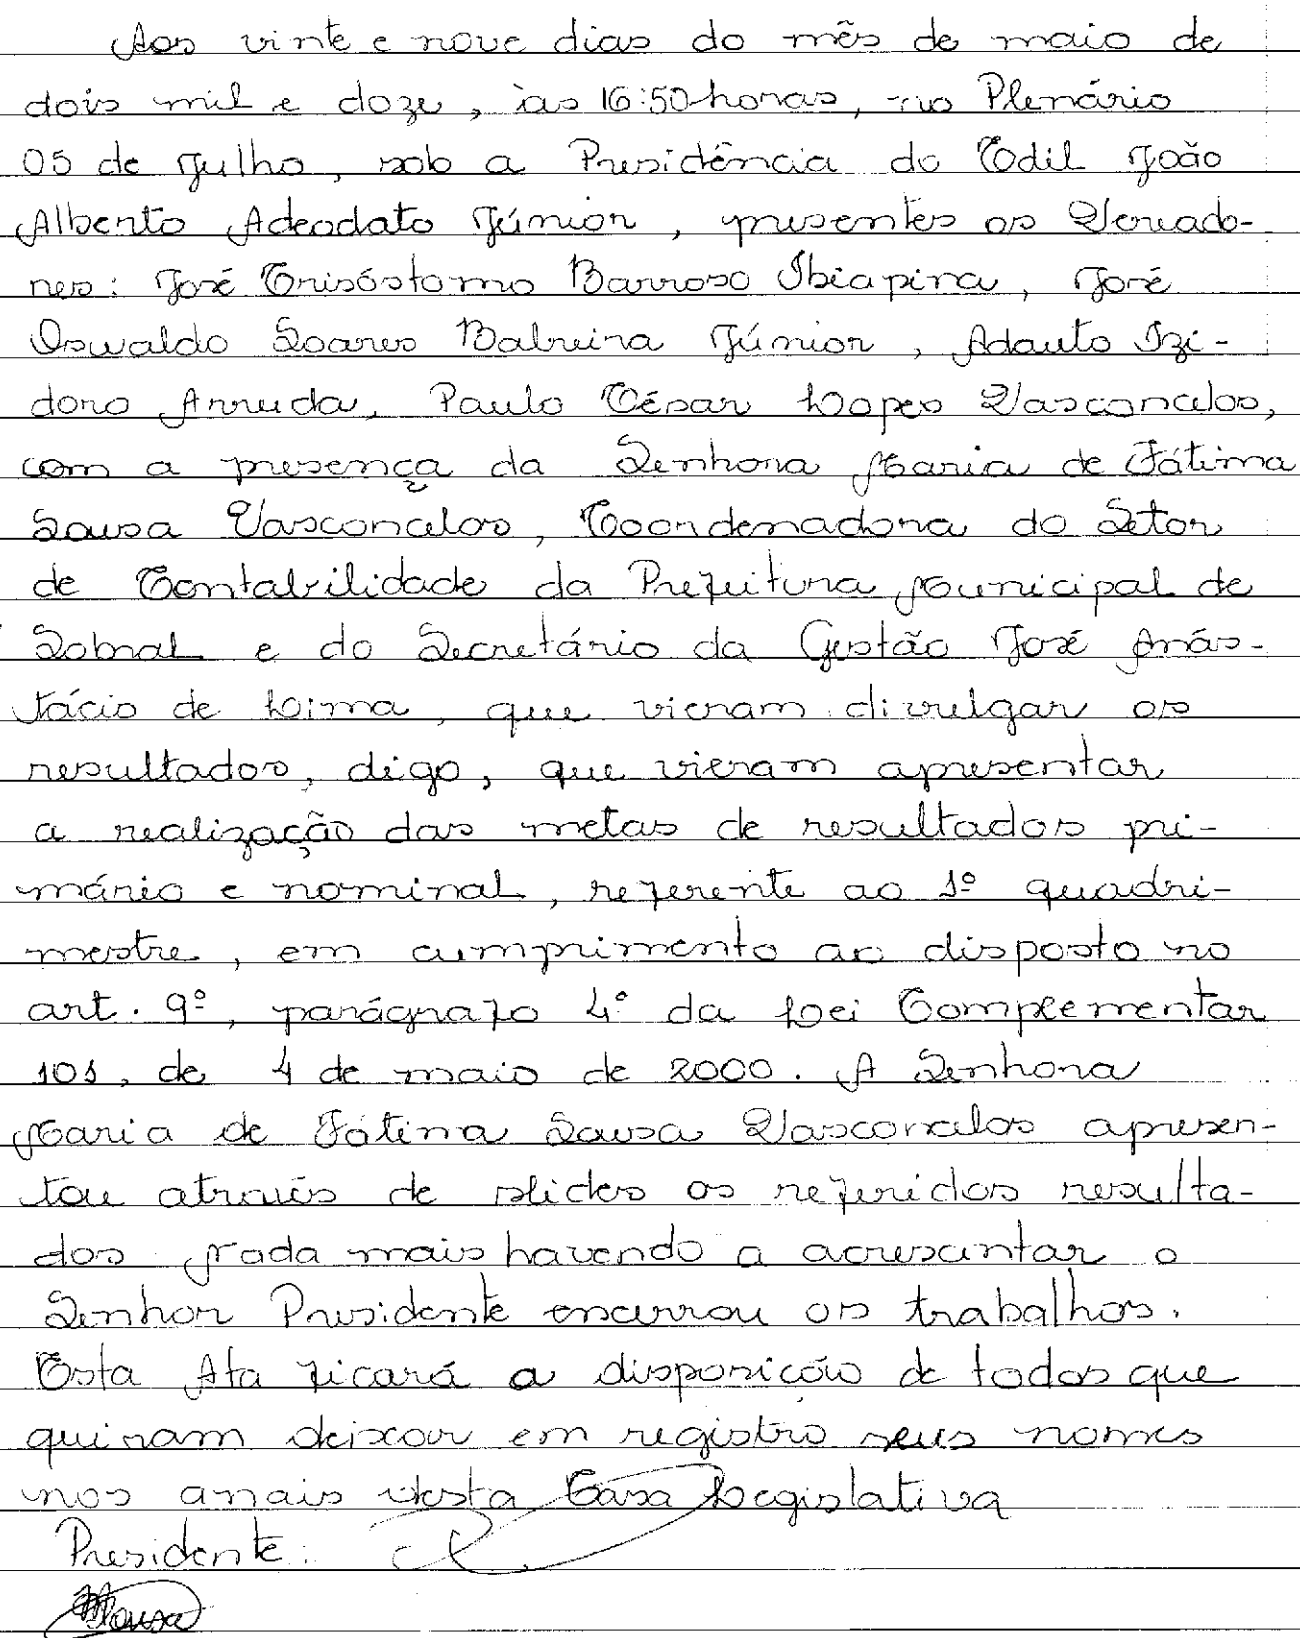 Aos vinte e nove dias do mês de maio de
dois mil e doze, às 16:50 horas, no Plenário
05 de Julho, sob a Presidência do Edil João
Alberto Adeodato Júnior, presentes os Vereado-
res: José Crisóstomo Barroso Ibiapina, José
Oswaldo Soares Balreira Júnior, Adauto Izi-
doro Arruda, Paulo César Lopes Vasconcelos,
com a presença da Senhora Maria de Fátima
Sousa Vasconcelos, Coordenadora do Setor
de Contabilidade da Prefeitura Municipal de
Sobral e do Secretário da Gestão José Anás-
tácio de Lima, que vieram divulgar os
resultados, digo, que vieram apresentar
a realização das metas de resultados pri-
mário e nominal, referente ao 1º quadri-
mestre, em cumprimento ao disposto no
art. 9º, parágrafo 4º da Lei Complementar
101, de 4 de maio de 2000. A Senhora
Maria de Fátima Sousa Vasconcelos apresen-
tou através de slides os referidos resulta-
dos Nada mais havendo a acrescentar o
Senhor Presidente encerrou os trabalhos.
Esta Ata ficará a disposição de todos que
queiram deixar em registro seus nomes
nos anais desta Casa Legislativa
Presidente: